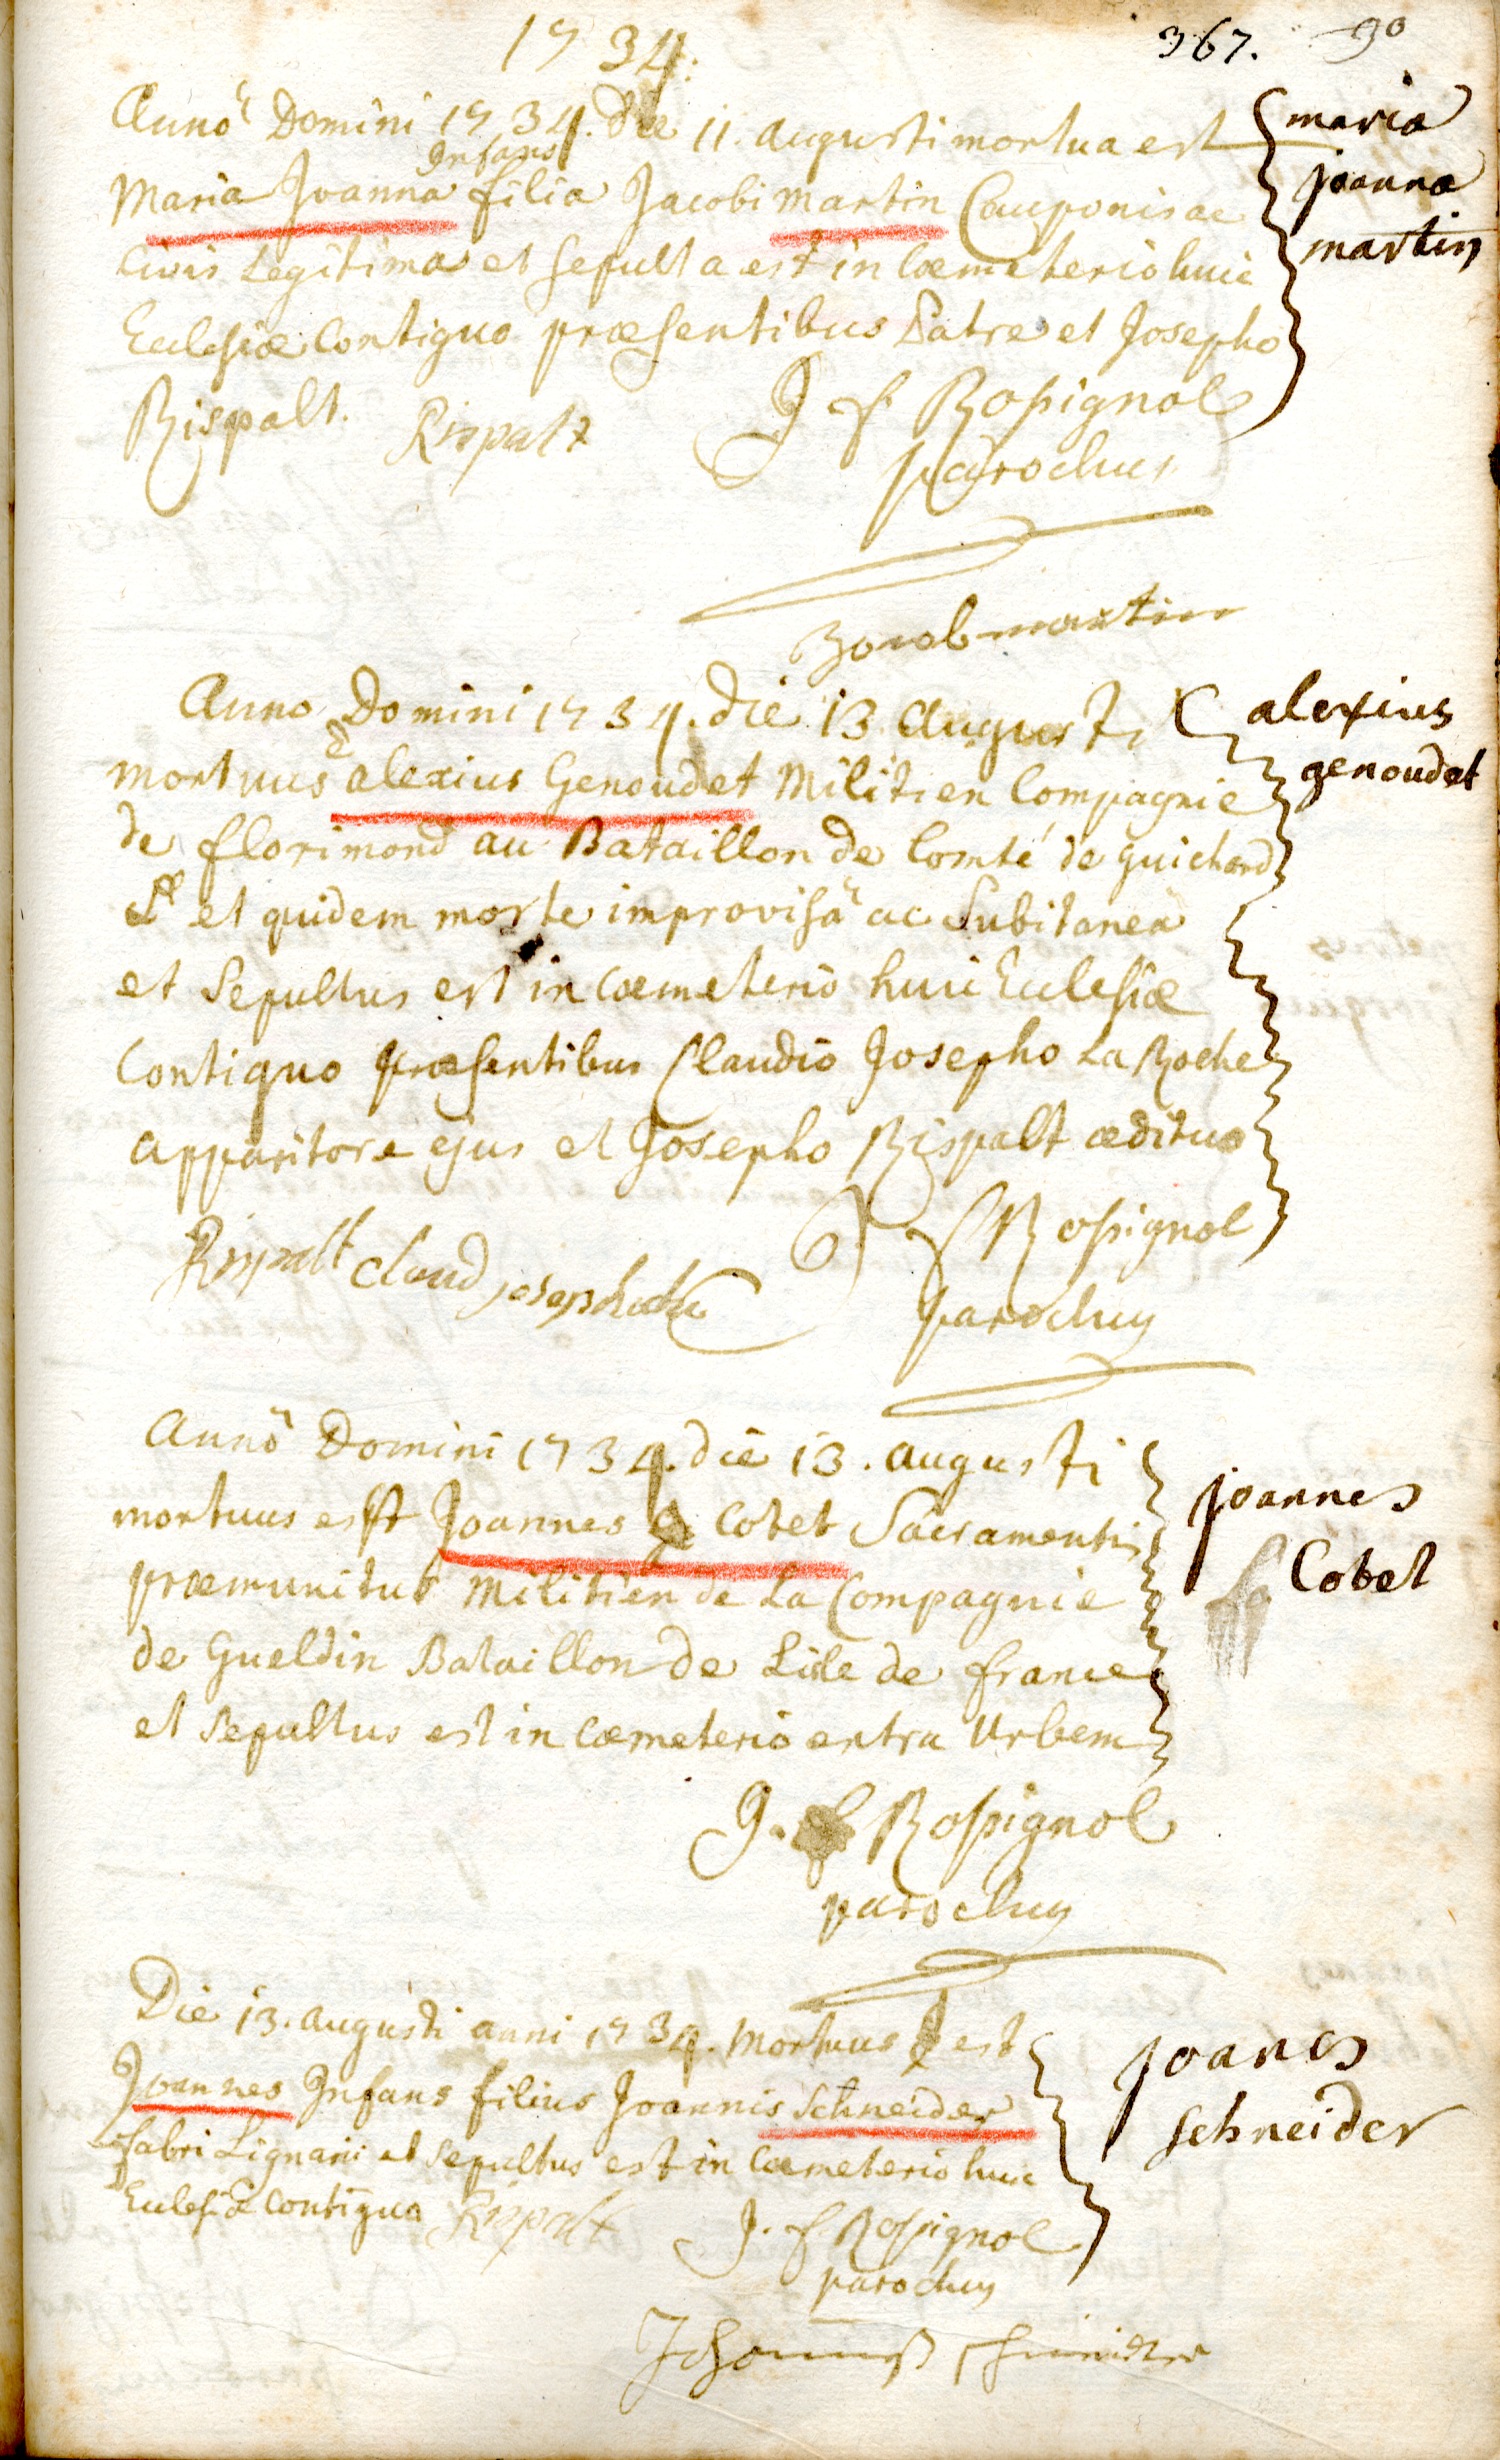 1734.
367. 90
Anno Domini 1734. die 11. augusti mortua est
infans
Maria Joanna filia Jacobi Martin Cauponis ac
Civis Legitima et sepulta est in Coemeterio huic
Ecclesiæ Contiguo præsentibus Patre et Josepho
Rispalt. Rispalt J f Rossignol
parochus
Jacob martin
maria
joanna
martin
Anno Domini 1734. die 13 augusti
mortuus est alexius Genoudet Militien Compagnie
de florimond au Bataillon de Comté de guichard
et quidem morte improvisâ ac Subitaneâ
et Sepultus est in Coemeterio huic Ecclesiæ
Contiguo præsentibus Claudio Josepho La Roche
apparitore ejus et Josepho Rispalt ædituo
Rispalt Claud joseph J f Rossignol
parochus
alexius
genoudet
Annô Domini 1734. die 13. augusti
mortuus est Joannes Cobet Sacramentis
præmunitus Militien de La Compagnie
de Gueldin Bataillon de Lisle de france
et Sepultus est in Coemeterio extra Urbem
J. f Rossignol
parochus
joannes
La Cobet
Die 13. augusti anni 1734. Mortuus est
Joannes Infans filius Joannis Schneider
fabri Lignarii et Sepultus est in Coemeterio huic
Ecclesiæ Contiguo Rispalt J. f Rossignol
parochus
joanes
schneider
Johannes schneider